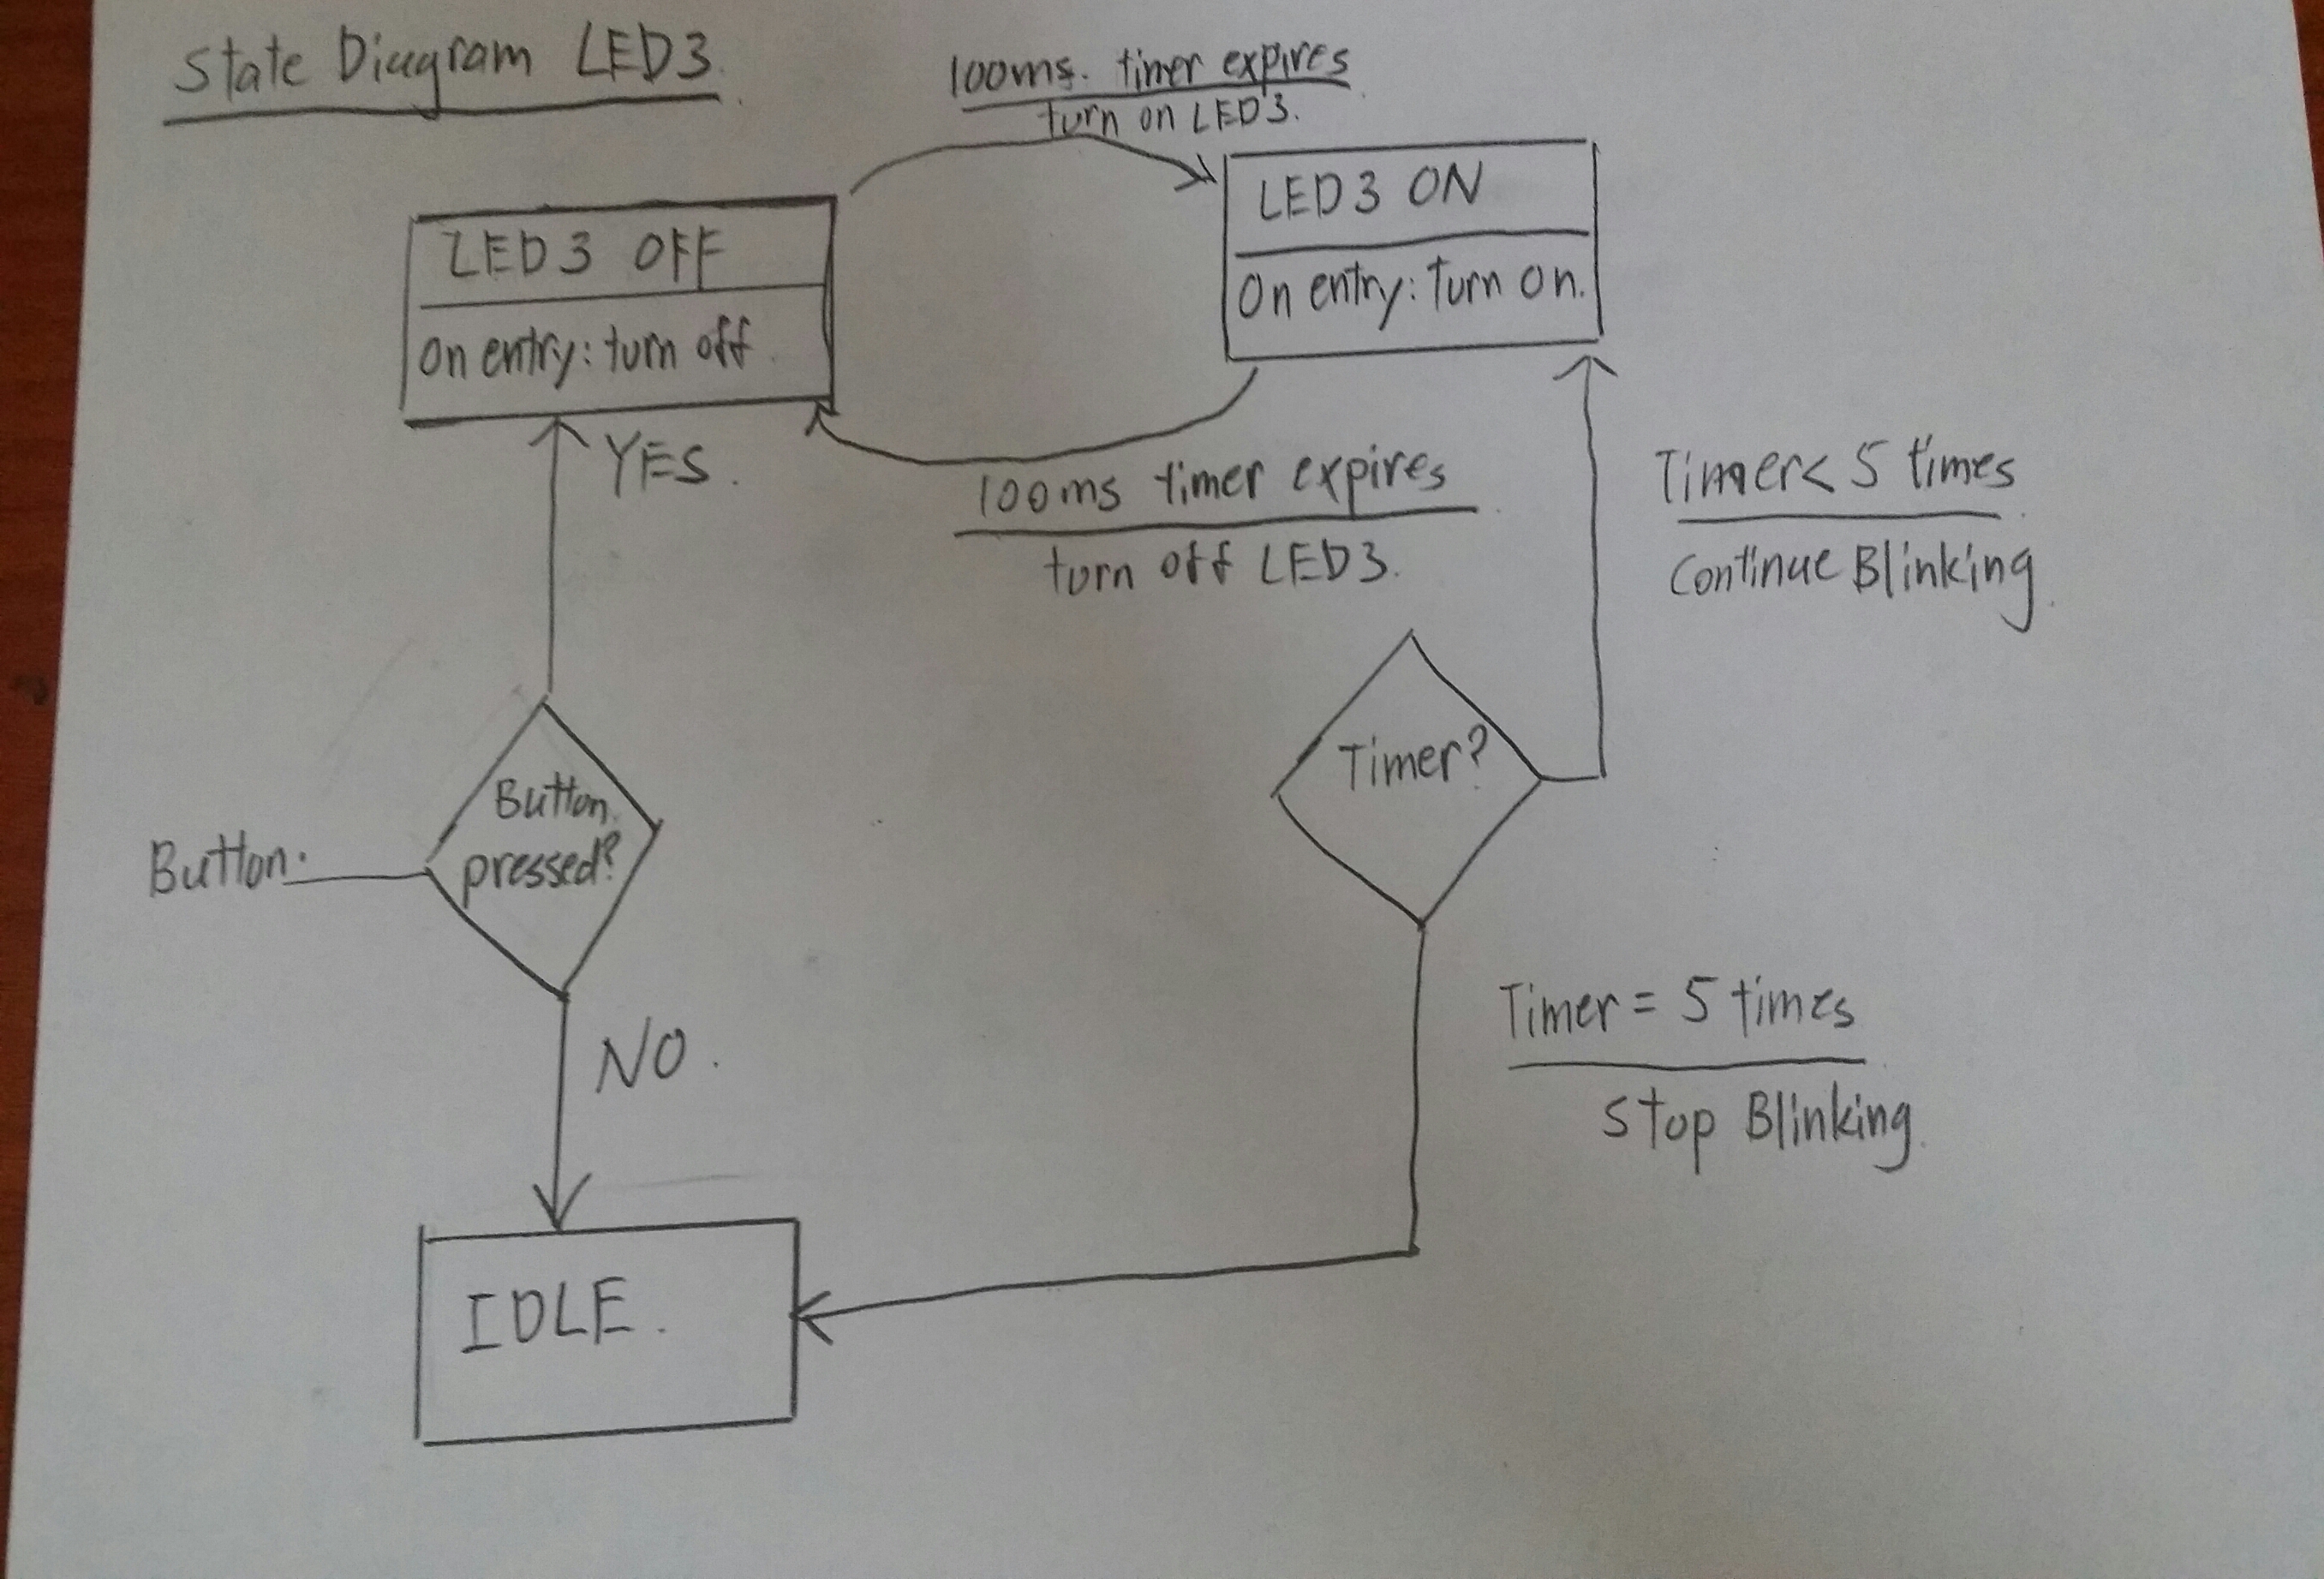 State Diagram LED3.
100ms. timer expires
turn on LED3.
LED3 OFF
On entry: turn off.
LED3 ON
On entry: Turn on.
YES.
100ms timer expires
turn off LED3.
Timer< 5 times
Continue Blinking.
Button.
Button
pressed?
Timer?
NO.
Timer = 5 times
Stop Blinking.
IDLE.